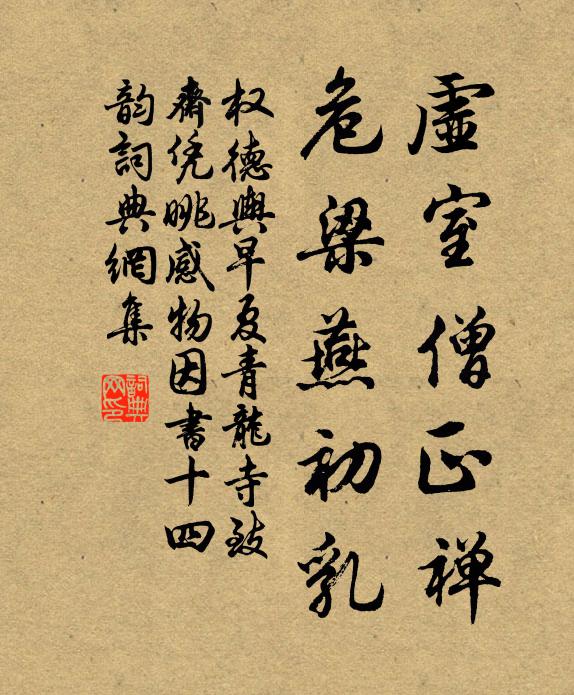 虛室僧正禅
危梁燕初乳
权德輿早夏青龍寺致
齋凭眺感物因書十四
韵詞典網集
詞典網印